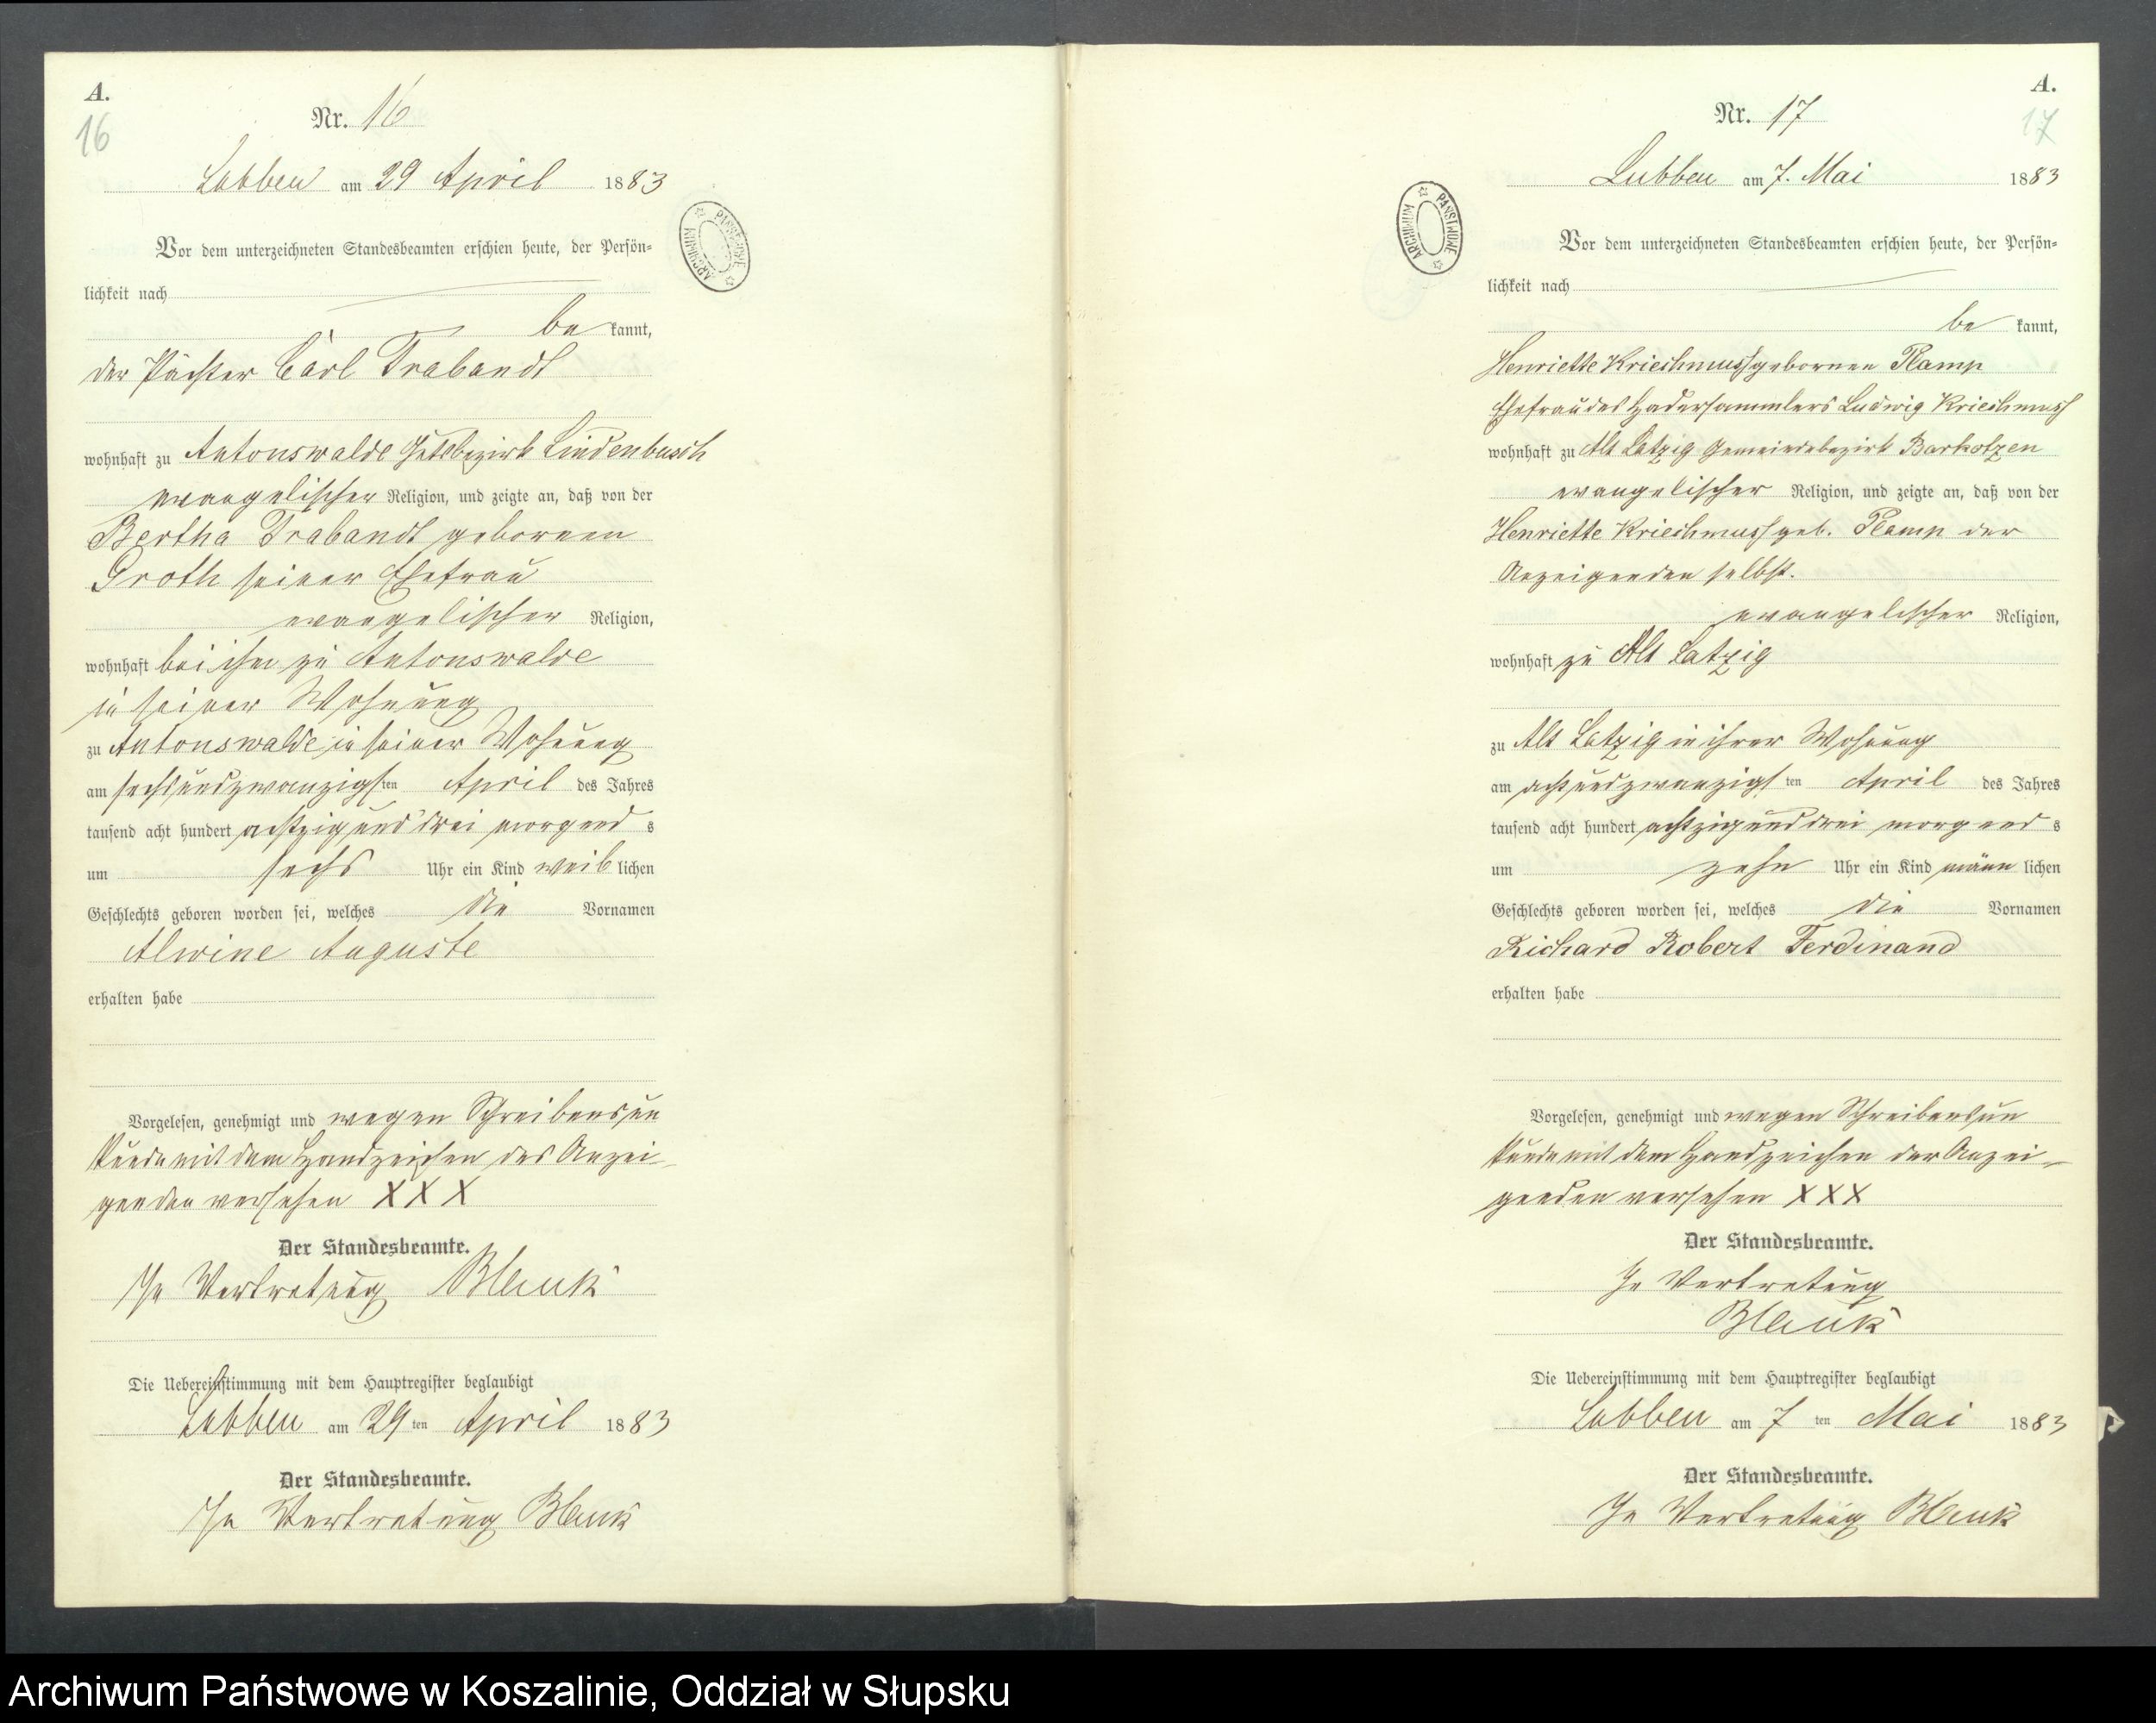 A.
16
Nr. 16
Lubben am 29 April 1883
Vor dem unterzeichneten Standesbeamten erschien heute, der Persön=
lichkeit nach
be kannt,
der Pächter Carl Trabandt
wohnhaft zu Antonswalde Gutsbezirk Lindenbusch
evangelischer Religion, und zeigte an, daß von der
Bertha Trabandt geborenen
Groth seiner Ehefrau
evangelischer Religion,
wohnhaft bei ihm zu Antonswalde
in seiner Wohnung
zu Antonswalde in seiner Wohnung
am sechsundzwanzigsten April des Jahres
tausend acht hundert achtzig und drei morgends
um sechs Uhr ein Kind weiblichen
Geschlechts geboren worden sei, welches die Vornamen
Alwine Auguste
erhalten habe
Vorgelesen, genehmigt und wegen Schreibensun
kunde mit dem Handzeichen des Anzei-
genden versehen XXX
Der Standesbeamte.
In Vertretung Blank
Die Uebereinstimmung mit dem Hauptregister beglaubigt
Lubben am 29ten April 1883
Der Standesbeamte.
In Vertretung Blank
A.
17
Nr. 17
Lubben am 7. Mai 1883
ARCHIWUM PAŃSTWOWE
Vor dem unterzeichneten Standesbeamten erschien heute, der Persön=
lichkeit nach
be kannt,
Henriette Kriechmuss gebornen Plamp
Ehefrau des Hadersammlers Ludwig Kriechmuss
wohnhaft zu Alt Latzig Gemeindebezirk Barkotzen
evangelischer Religion, und zeigte an, daß von der
Henriette Kriechmuss geb. Plamp der
Anzeigenden selbst.
evangelischer Religion,
wohnhaft zu Alt Latzig
zu Alt Latzig in ihrer Wohnung
am achtundzwanzigsten April des Jahres
tausend acht hundert achtzig und drei morgends
um zehn Uhr ein Kind männlichen
Geschlechts geboren worden sei, welches die Vornamen
Richard Robert Ferdinand
erhalten habe
Vorgelesen, genehmigt und wegen Schreibensun
kunde mit dem Handzeichen der Anzei-
genden versehen XXX
Der Standesbeamte.
In Vertretung
Blank
Die Uebereinstimmung mit dem Hauptregister beglaubigt
Lubben am 7ten Mai 1883
Der Standesbeamte.
In Vertretung Blank
Archiwum Państwowe w Koszalinie, Oddział w Słupsku